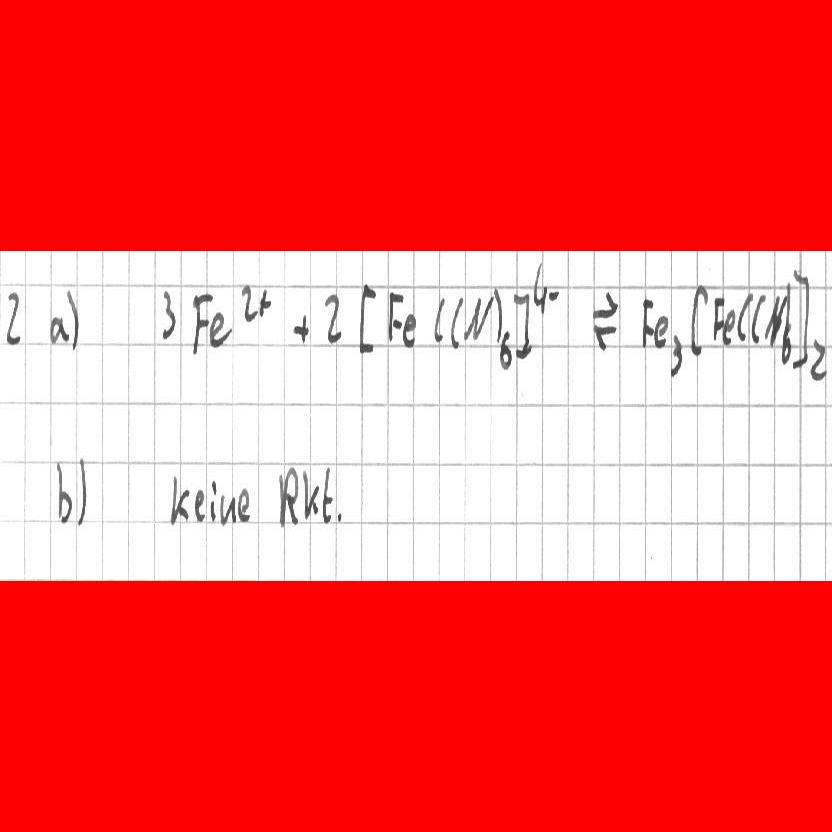 2 a) 3 Fe²⁺ + 2 [Fe(CN)₆]⁴⁻ ⇌ Fe₃[Fe(CN)₆]₂
b) keine Rkt.